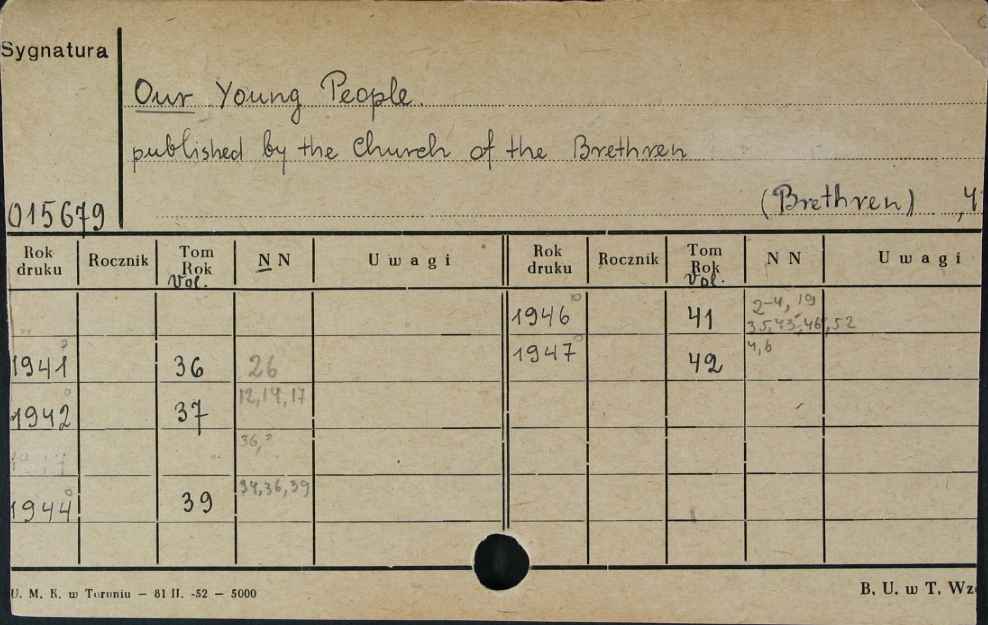 Sygnatura
Our Young People.
published by the Church of the Brethren
(Brethren)
015679
Rok druku Rocznik Tom Rok Vol. N N Uwagi Rok druku Rocznik Tom Rok Vol. N N Uwagi
1946 41 2-4, 19
35,43-46,52
1941 36 26 1947 42 4,6
1942 37 12,14,17
36,?
1944 39 34,36,39
U. M. K. w Toruniu – 81 II. -52 – 5000 B. U. w T.